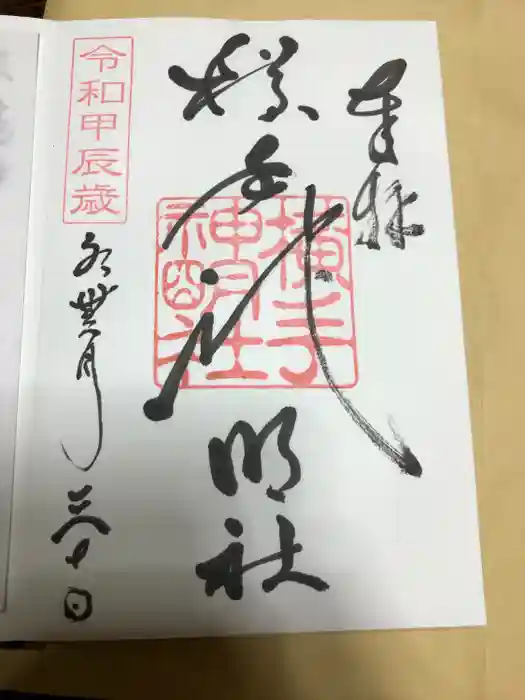 奉拝
横手神明社
横手
神明社
令和甲辰歳
水無月三十日